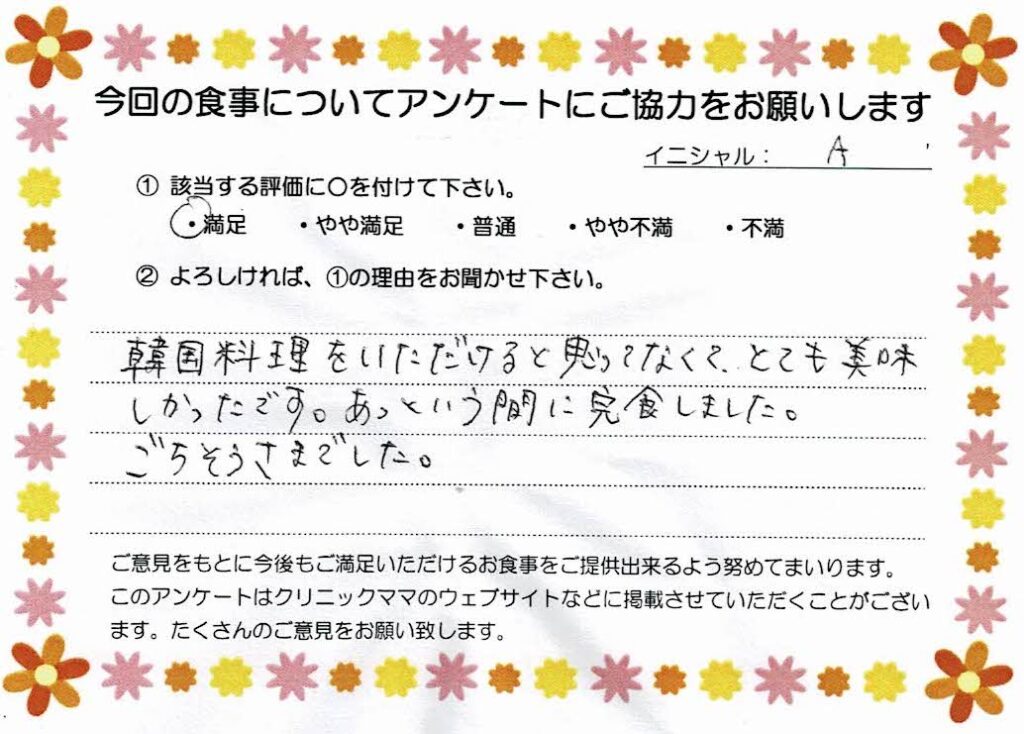 今回の食事についてアンケートにご協力をお願いします
イニシャル： A
① 該当する評価に○を付けて下さい。
・満足 ・やや満足 ・普通 ・やや不満 ・不満
② よろしければ、①の理由をお聞かせ下さい。
韓国料理をいただけると思ってなくて、とても美味
しかったです。あっという間に完食しました。
ごちそうさまでした。
ご意見をもとに今後もご満足いただけるお食事をご提供出来るよう努めてまいります。
このアンケートはクリニックママのウェブサイトなどに掲載させていただくことがござい
ます。たくさんのご意見をお願い致します。